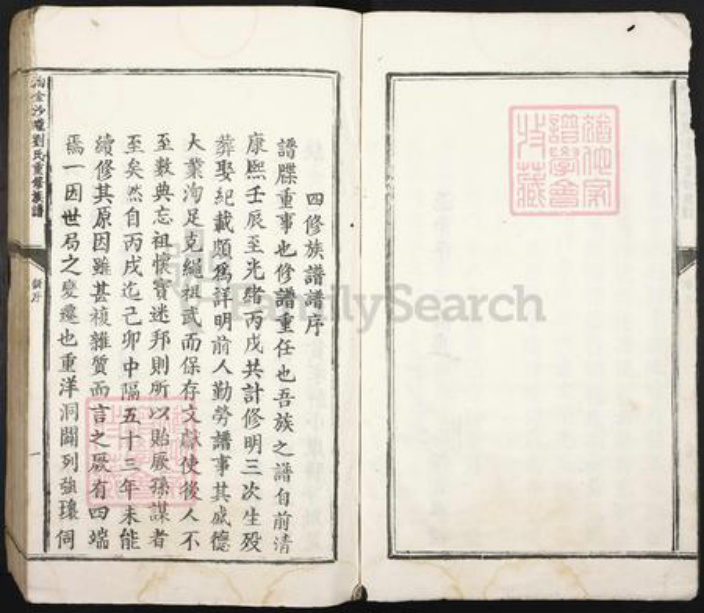 四修族譜譜序
譜牒重事也修譜重任也吾族之譜自前清
康熙壬辰至光緒丙戌共計修明三次生殁
葬娶紀載頗爲詳明前人勤勞譜事其盛德
大業洵足克繩祖武而保存文獻使後人不
至數典忘祖懷寳迷邦則所以貽厥孫謀者
至矣然自丙戌迄己卯中隔五十三年未能
續修其原因雖甚複雜質而言之厥有四端
焉一因世局之變遷也重洋洞闢列強環伺
金沙 劉氏重修族譜
FamilySearch